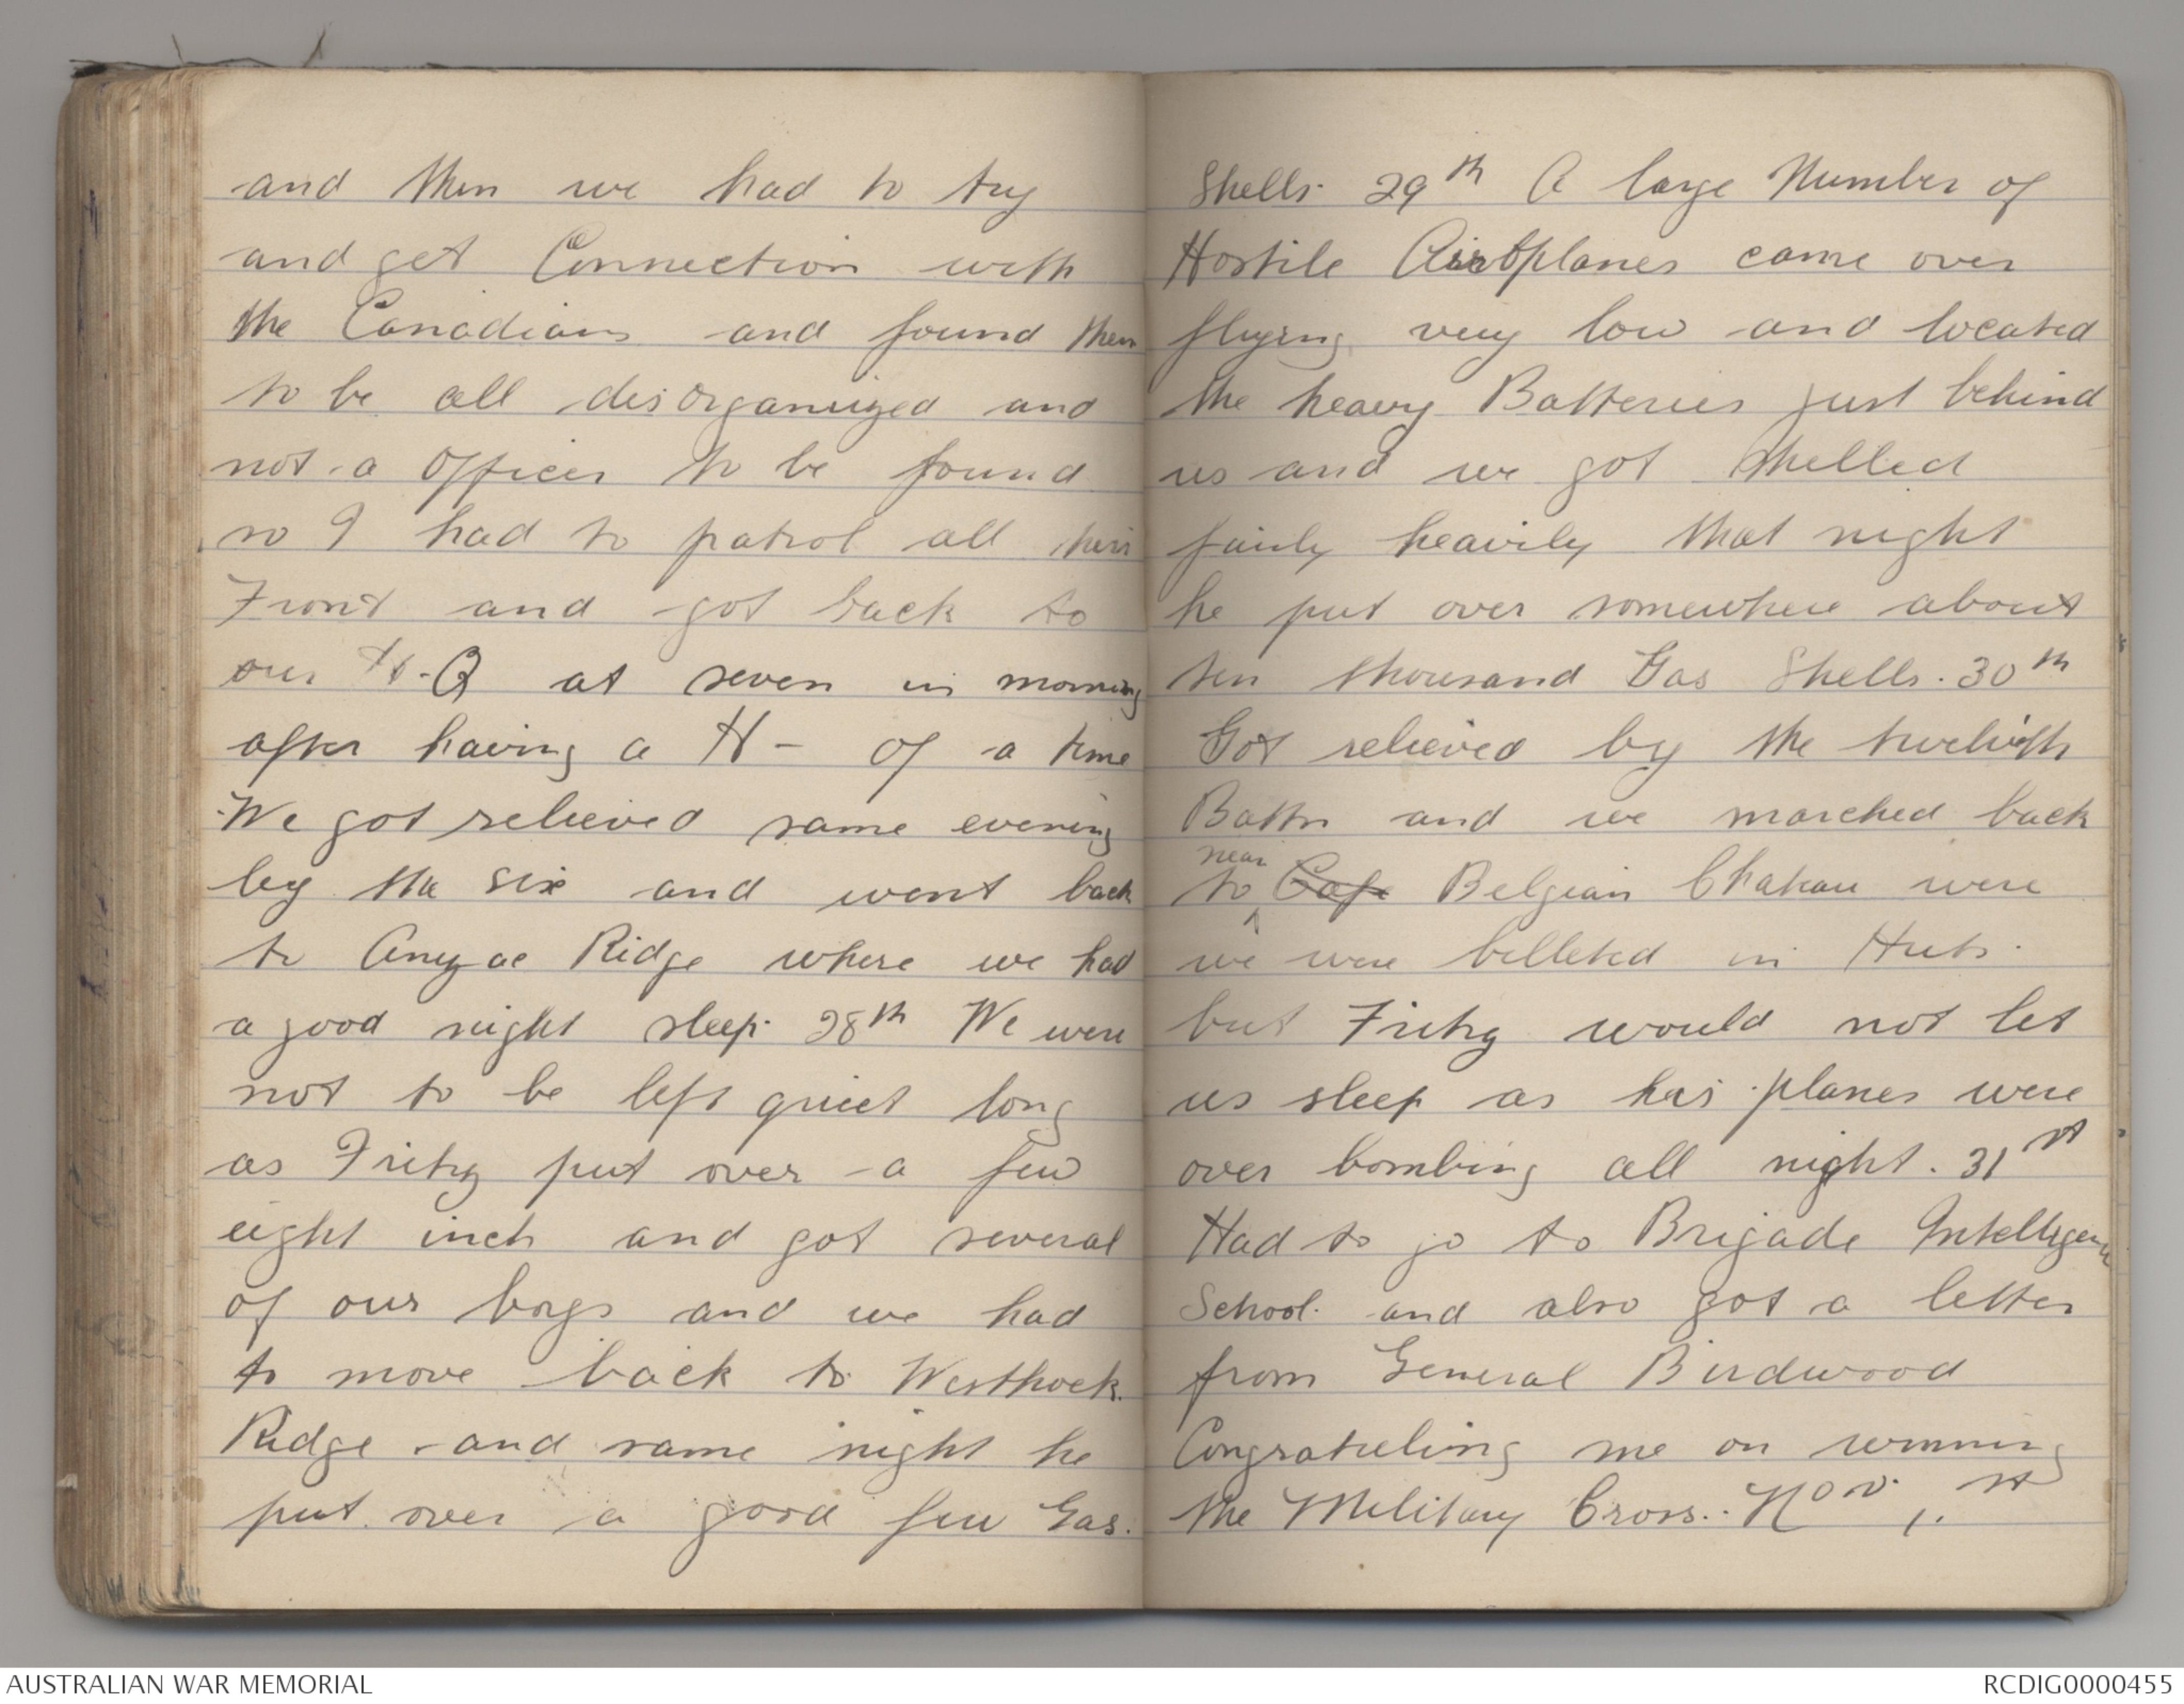 and then we had to try
and get Connection with
the Canadians and found them
to be all disorganized and
not a Officer to be found
so I had to patrol all their
Front and got back to
our H-Q at seven in morning
after having a H - of a time
We got relieved same evening
by the six and went back
to Anzac Ridge where we had
a good night sleep. 28th We were
not to be left quiet long
as Fritz put over a few
eight inch and got several
of our boys and we had
to move back to Westhoek
Ridge and same night he
put over a good few Gas.
Shells. 29th A large Number of
Hostile Airoplanes came over
flying very low and located
the heavy Batteries just behind
us and we got shelled
fairly heavily that night
he put over somewhere about
ten thousand Gas Shells. 30th
Got relieved by the twelvth
Battn and we marched back
near
to Cafe Belgian Chateau were
we were billeted in Huts.
but Fritz would not let
us sleep as his planes were
over bombing all night. 31st
Had to go to Brigade Intelligence
School. and also got a letter
from General Birdwood
Congratuling me on winning
the Military Cross. Nov. 1st
AUSTRALIAN WAR MEMORIAL
RCDIG0000455